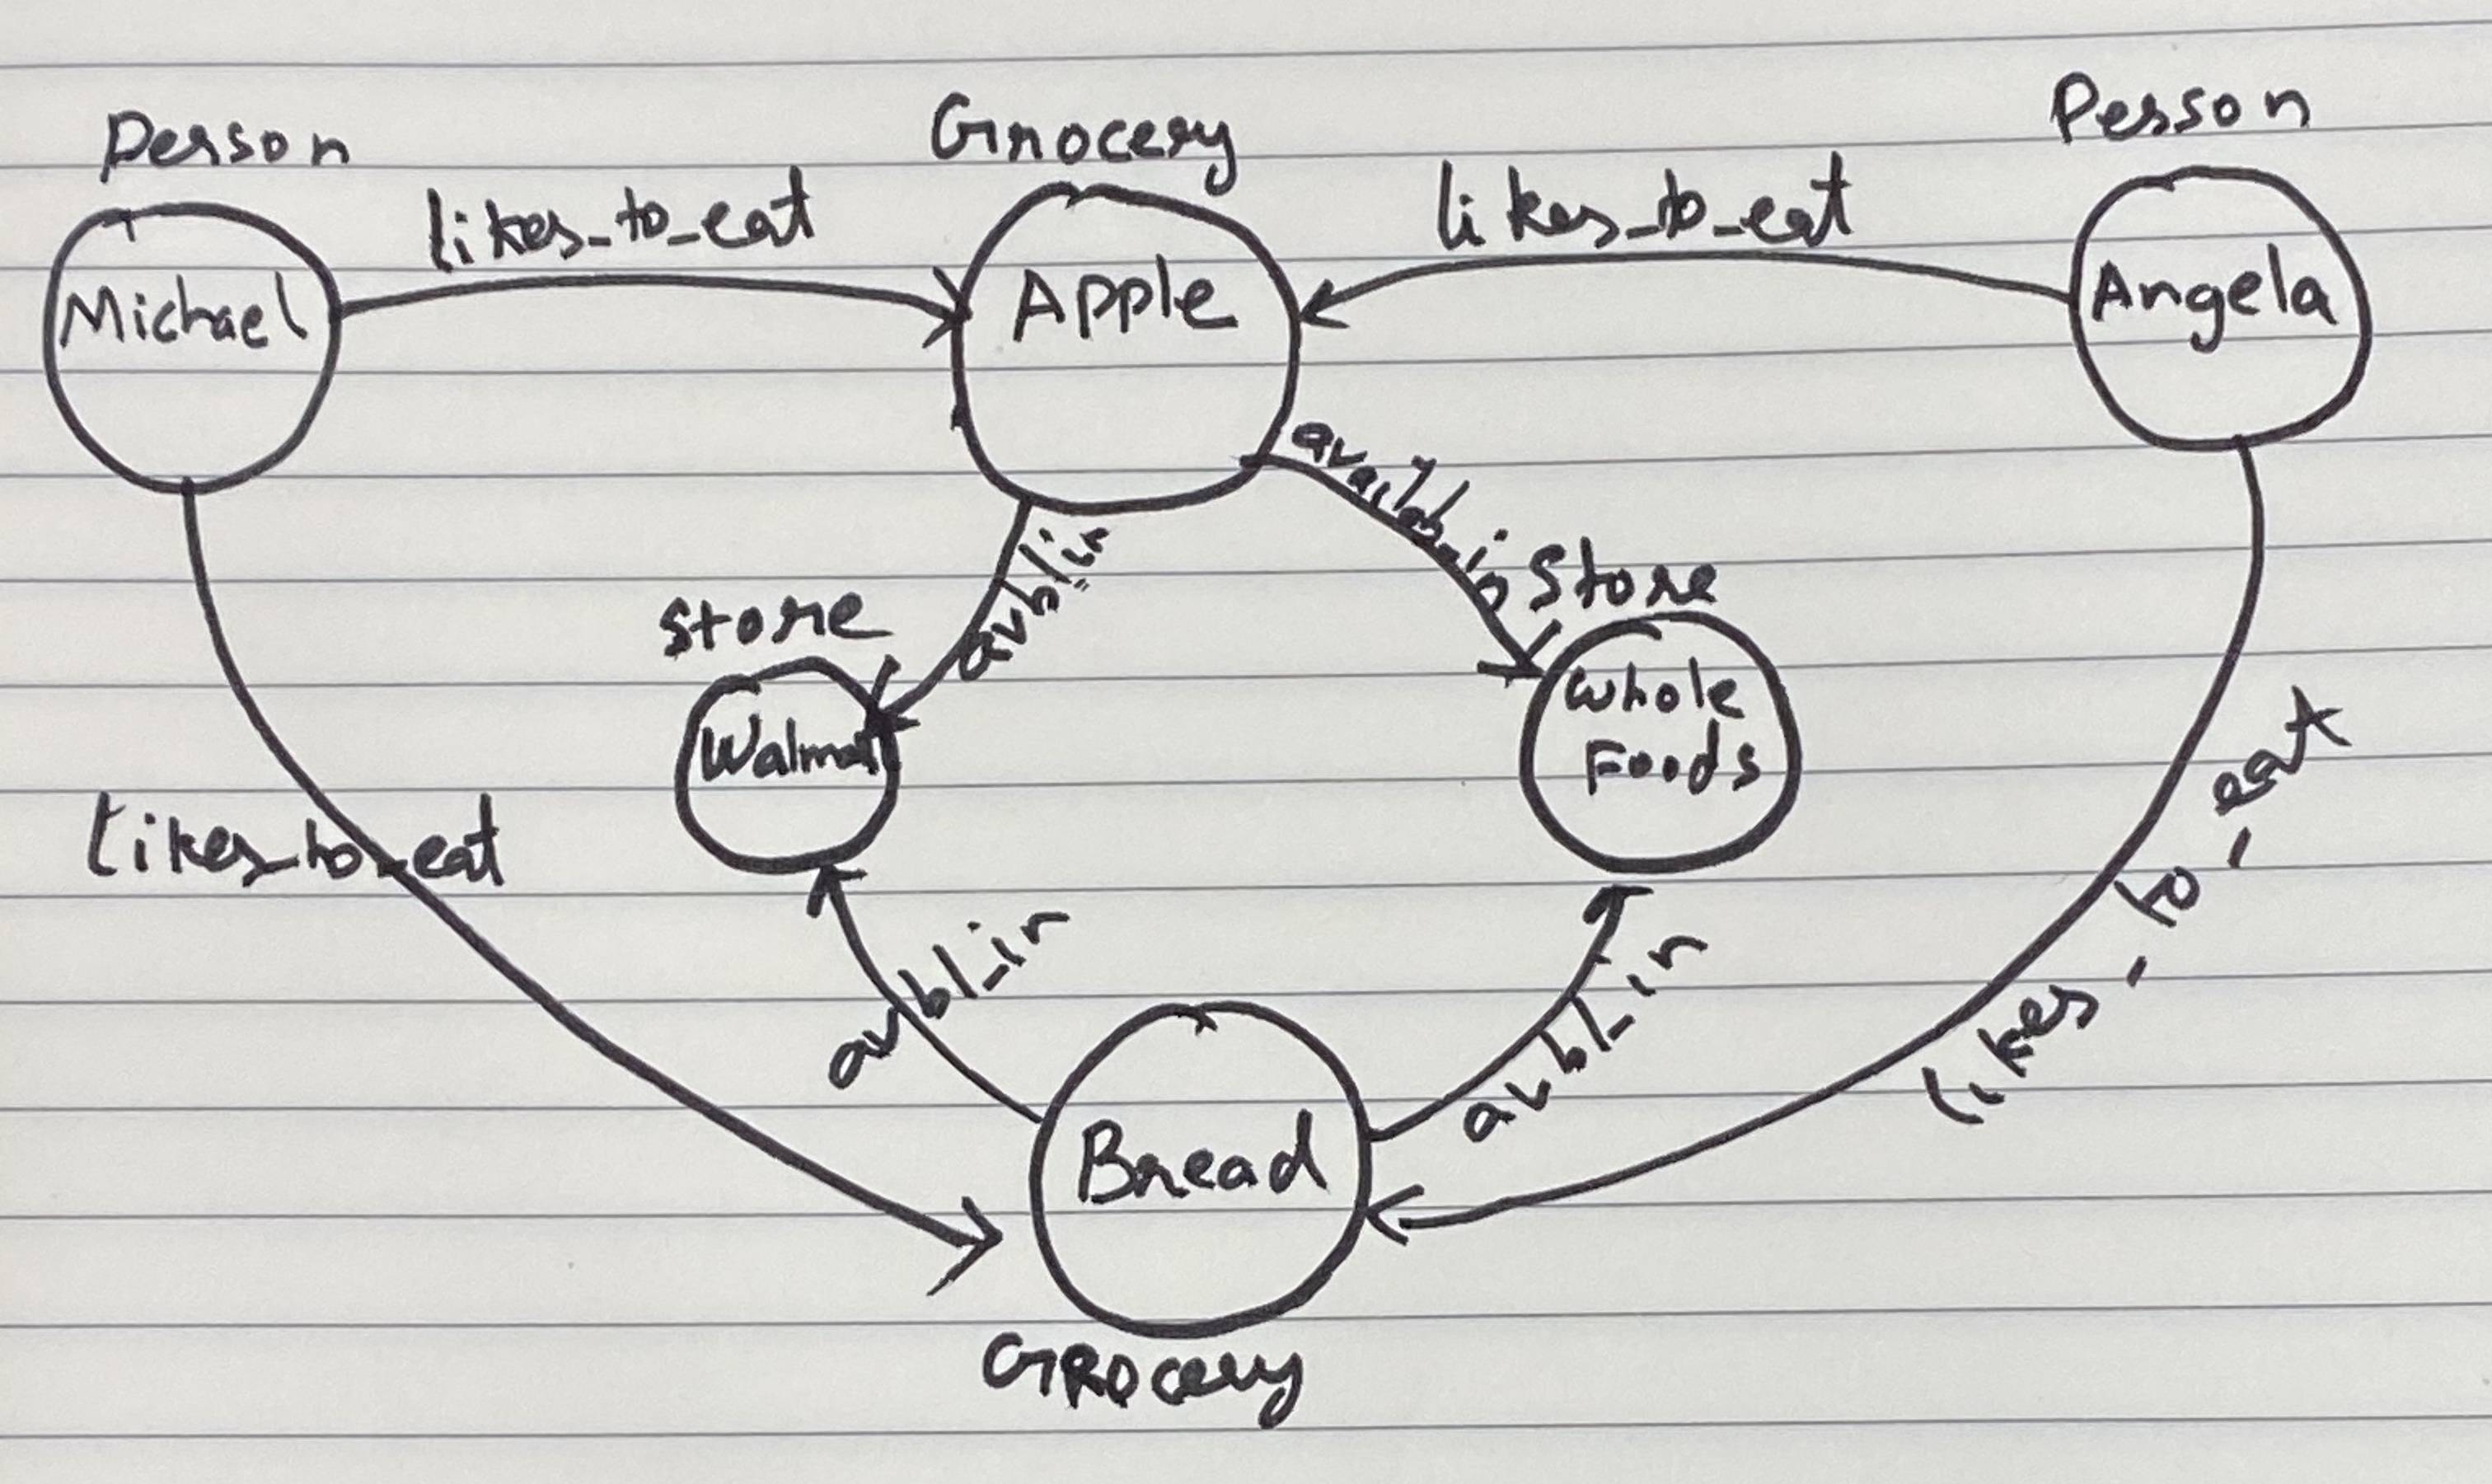 Person
Grocery
Person
likes_to_eat
likes_to_eat
Michael
Apple
Angela
availab_in
avbl_in
Store
Store
Walmart
Whole
Foods
likes_to_eat
likes_to_eat
avbl_in
avbl_in
Bread
GROcery